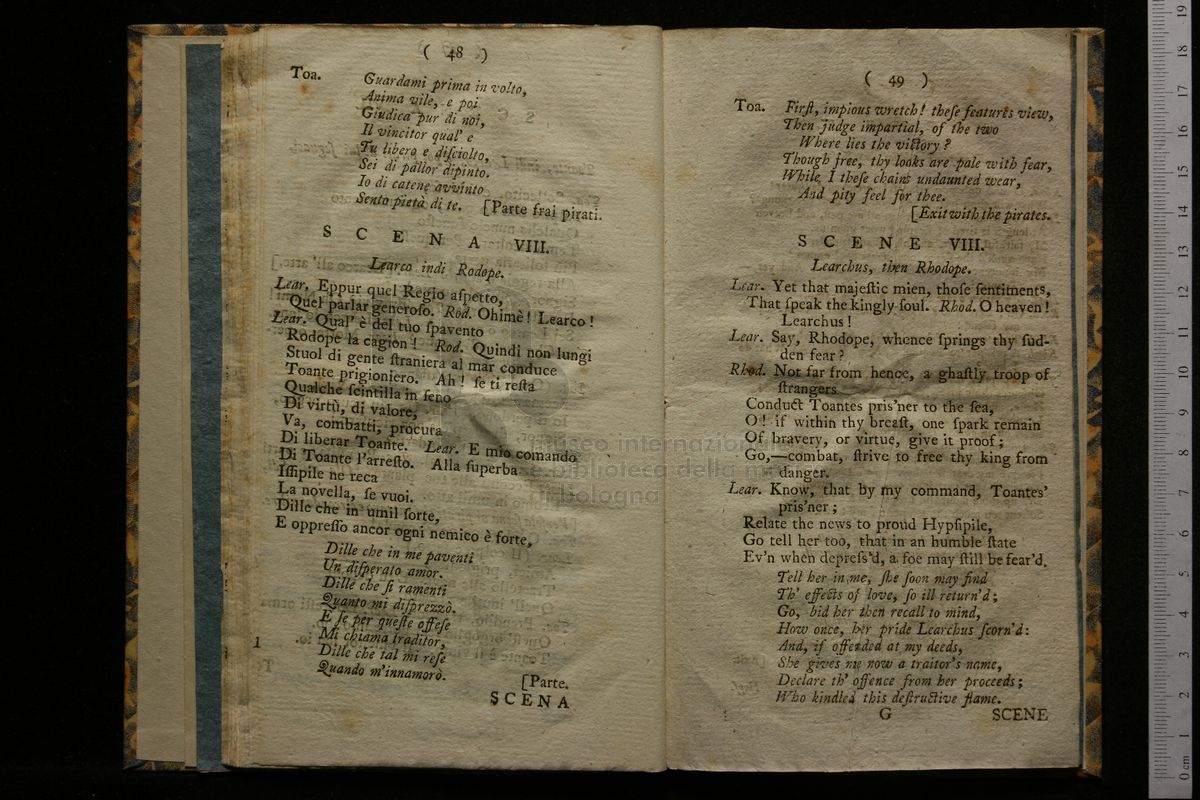 ( 48 )
Toa. Guardami prima in volto,
Anima vile, e poi
Giudica pur di noi,
Il vincitor qual' e
Tu libero e diſciolto,
Sei di pallor dipinto.
Io di catene avvinto
Sento pietà di te. [Parte frai pirati.
SCENA VIII.
Learco indi Rodope.
Lear. Eppur quel Regio aſpetto,
Quel parlar generoſo. Rod. Ohimè! Learco!
Lear. Qual' è del tuo ſpavento
Rodope la cagion! Rod. Quindi non lungi
Stuol di gente ſtraniera al mar conduce
Toante prigioniero. Ah! ſe ti reſta
Qualche ſcintilla in ſeno
Di virtù, di valore,
Va, combatti, procura
Di liberar Toante. Lear. E mio comando
Di Toante l'arreſto. Alla ſuperba
Iſſipile ne reca
La novella, ſe vuoi.
Dille che in umil ſorte,
E oppreſſo ancor ogni nemico è forte,
Dille che in me paventi
Un diſperato amor.
Dille che ſi ramenti
Quanto mi diſprezzò.
E ſe per queſte offeſe
1 Mi chiama traditor,
Dille che tal mi reſe
Quando m'innamorò.
[Parte.
SCENA
( 49 )
Toa. Firſt, impious wretch! theſe features view,
Then judge impartial, of the two
Where lies the victory?
Though free, thy looks are pale with fear,
While I theſe chains undaunted wear,
And pity feel for thee.
[Exit with the pirates.
SCENE VIII.
Learchus, then Rhodope.
Lear. Yet that majeſtic mien, thoſe ſentiments,
That ſpeak the kingly ſoul. Rhod. O heaven!
Learchus!
Lear. Say, Rhodope, whence ſprings thy ſud-
den fear?
Rhod. Not far from hence, a ghaſtly troop of
ſtrangers
Conduct Toantes pris'ner to the ſea,
O! if within thy breaſt, one ſpark remain
Of bravery, or virtue, give it proof;
Go,—combat, ſtrive to free thy king from
danger.
Lear. Know, that by my command, Toantes'
pris'ner;
Relate the news to proud Hypſipile,
Go tell her too, that in an humble ſtate
Ev'n when depreſs'd, a foe may ſtill be fear'd.
Tell her in me, ſhe ſoon may find
Th' effects of love, ſo ill return'd;
Go, bid her then recall to mind,
How once, her pride Learchus ſcorn'd:
And, if offended at my deeds,
She gives me now a traitor's name,
Declare th' offence from her proceeds;
Who kindled this deſtructive flame.
G SCENE
museo internazionale
e biblioteca della musica
di bologna
0 cm 1 2 3 4 5 6 7 8 9 10 11 12 13 14 15 16 17 18 19